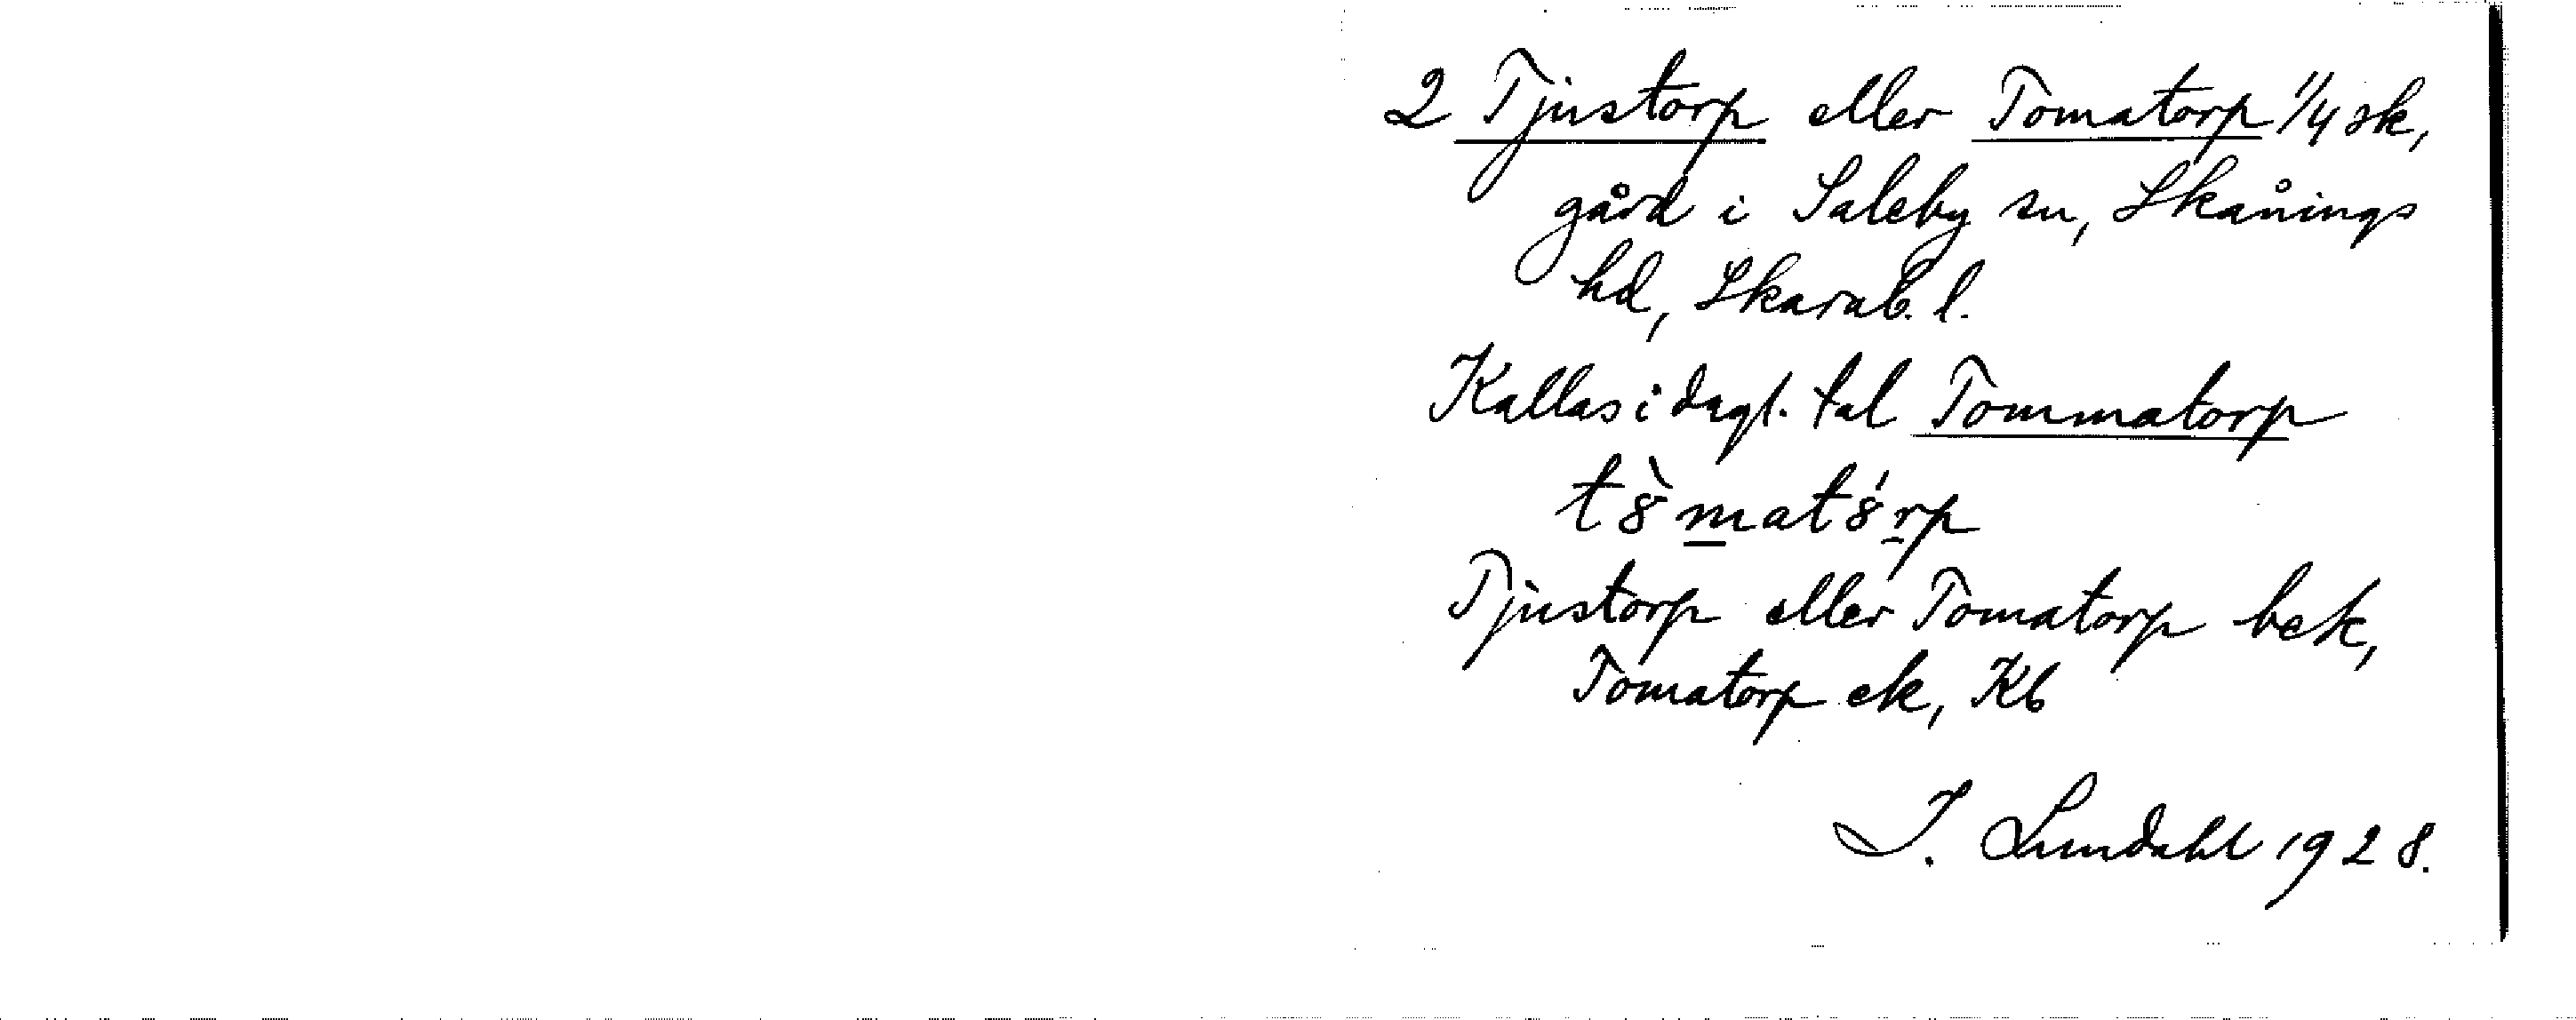 2 Tjustorp eller Tomatorp 1/4 sk,
gård i Saleby sn, Skånings
hd, Skarab. l.
Kallas i dagl. tal Tommatorp
t8̀mat8́rp
Tjustorp eller Tomatorp bek,
Tomatorp ek, Kb
I. Lundahl 1928.